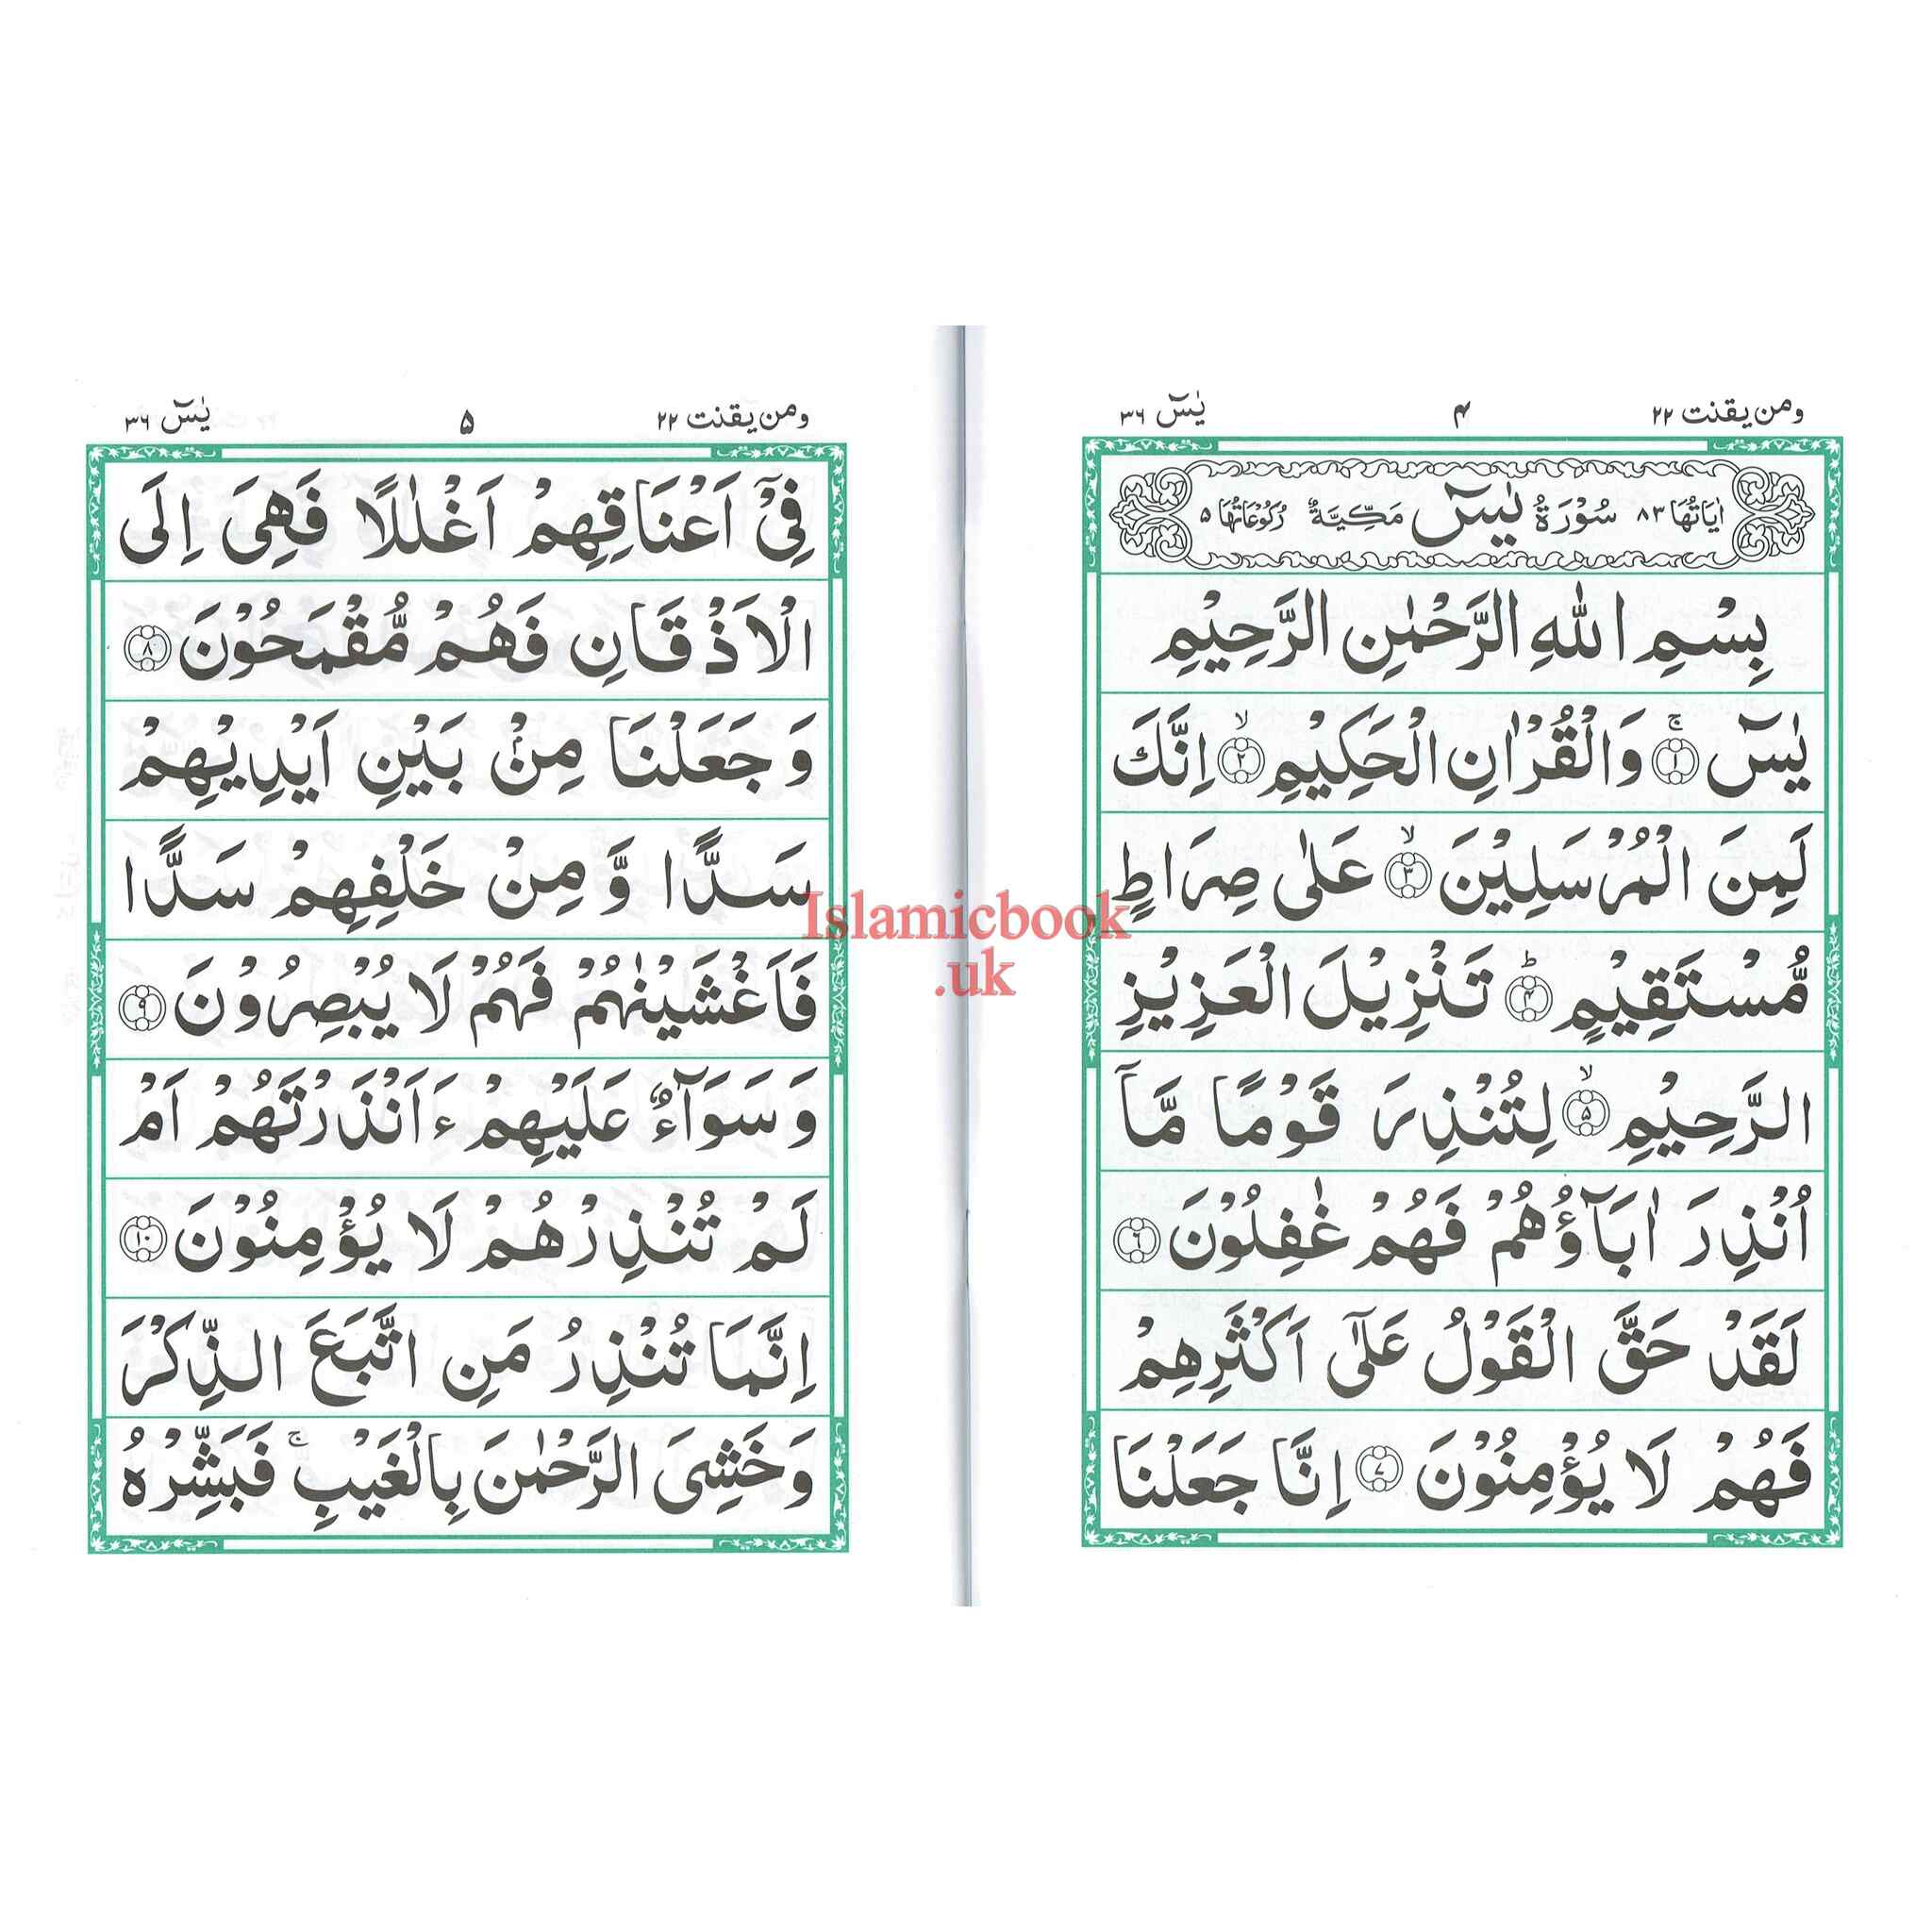 ومن يقنت ٢٢
۴
يٰسٓ ٣٦
اٰيَاتُهَا ٨٣ سُوْرَةُ يٰسٓ مَكِّيَّةٌ رُكُوْعَاتُهَا ۵
بِسْمِ اللهِ الرَّحْمٰنِ الرَّحِيْمِ
يٰسٓ ۚ﴿١﴾ وَالْقُرْاٰنِ الْحَكِيْمِ ۙ﴿٢﴾ اِنَّكَ
لَمِنَ الْمُرْسَلِيْنَ ۙ﴿٣﴾ عَلٰى صِرَاطٍ
مُّسْتَقِيْمٍ ؕ﴿۴﴾ تَنْزِيْلَ الْعَزِيْزِ
الرَّحِيْمِ ۙ﴿۵﴾ لِتُنْذِرَ قَوْمًا مَّاۤ
اُنْذِرَ اٰبَآؤُهُمْ فَهُمْ غٰفِلُوْنَ ﴿٦﴾
لَقَدْ حَقَّ الْقَوْلُ عَلٰٓى اَكْثَرِهِمْ
فَهُمْ لَا يُؤْمِنُوْنَ ﴿٧﴾ اِنَّا جَعَلْنَا
ومن يقنت ٢٢
۵
يٰسٓ ٣٦
فِيْۤ اَعْنَاقِهِمْ اَغْلٰلًا فَهِىَ اِلَى
الْاَذْقَانِ فَهُمْ مُّقْمَحُوْنَ ﴿٨﴾
وَجَعَلْنَا مِنْۢ بَيْنِ اَيْدِيْهِمْ
سَدًّا وَّمِنْ خَلْفِهِمْ سَدًّا
فَاَغْشَيْنٰهُمْ فَهُمْ لَا يُبْصِرُوْنَ ﴿٩﴾
وَسَوَآءٌ عَلَيْهِمْ ءَاَنْذَرْتَهُمْ اَمْ
لَمْ تُنْذِرْهُمْ لَا يُؤْمِنُوْنَ ﴿١٠﴾
اِنَّمَا تُنْذِرُ مَنِ اتَّبَعَ الذِّكْرَ
وَخَشِىَ الرَّحْمٰنَ بِالْغَيْبِ ۚ فَبَشِّرْهُ
Islamicbook
.uk